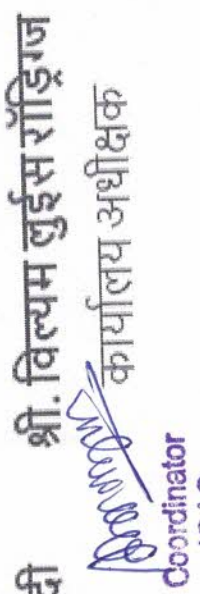 दी श्री. विल्यम लुईस रॉड्रिग्ज
कार्यालय अधीक्षक
Coordinator